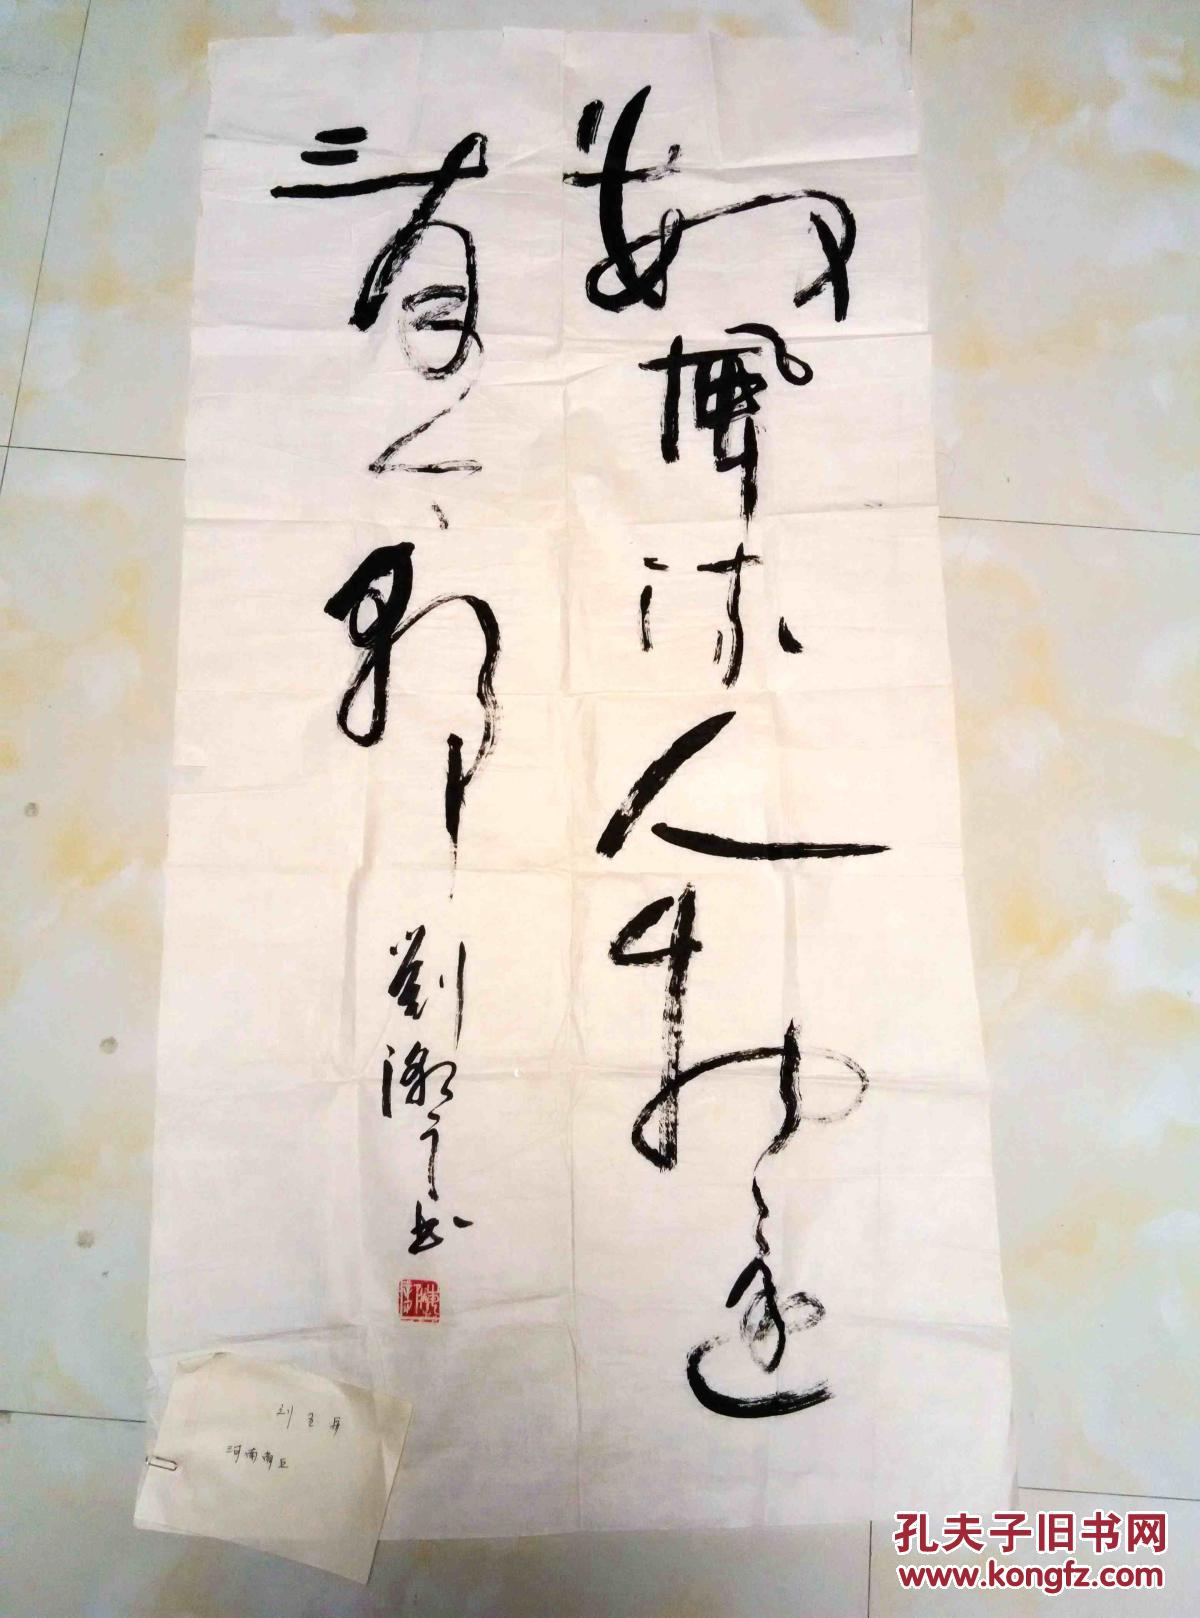 數風流人物還
看今朝
劉
书
河南商丘
孔夫子旧书网
www.kongfz.com